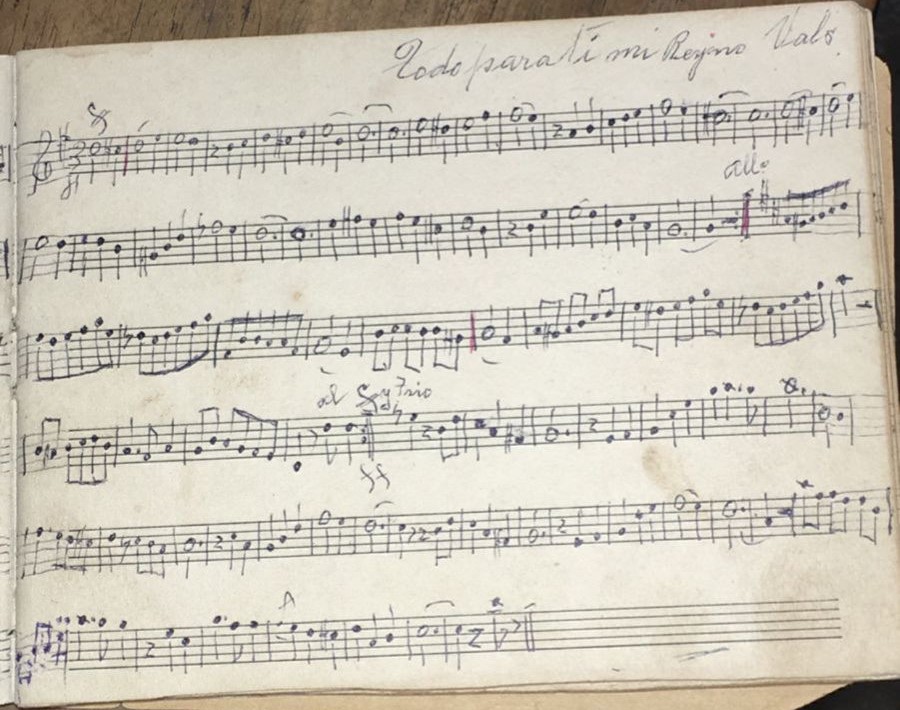 Todo para ti mi Reyno Vals.
3
ff
all:
al
y Trio
ff